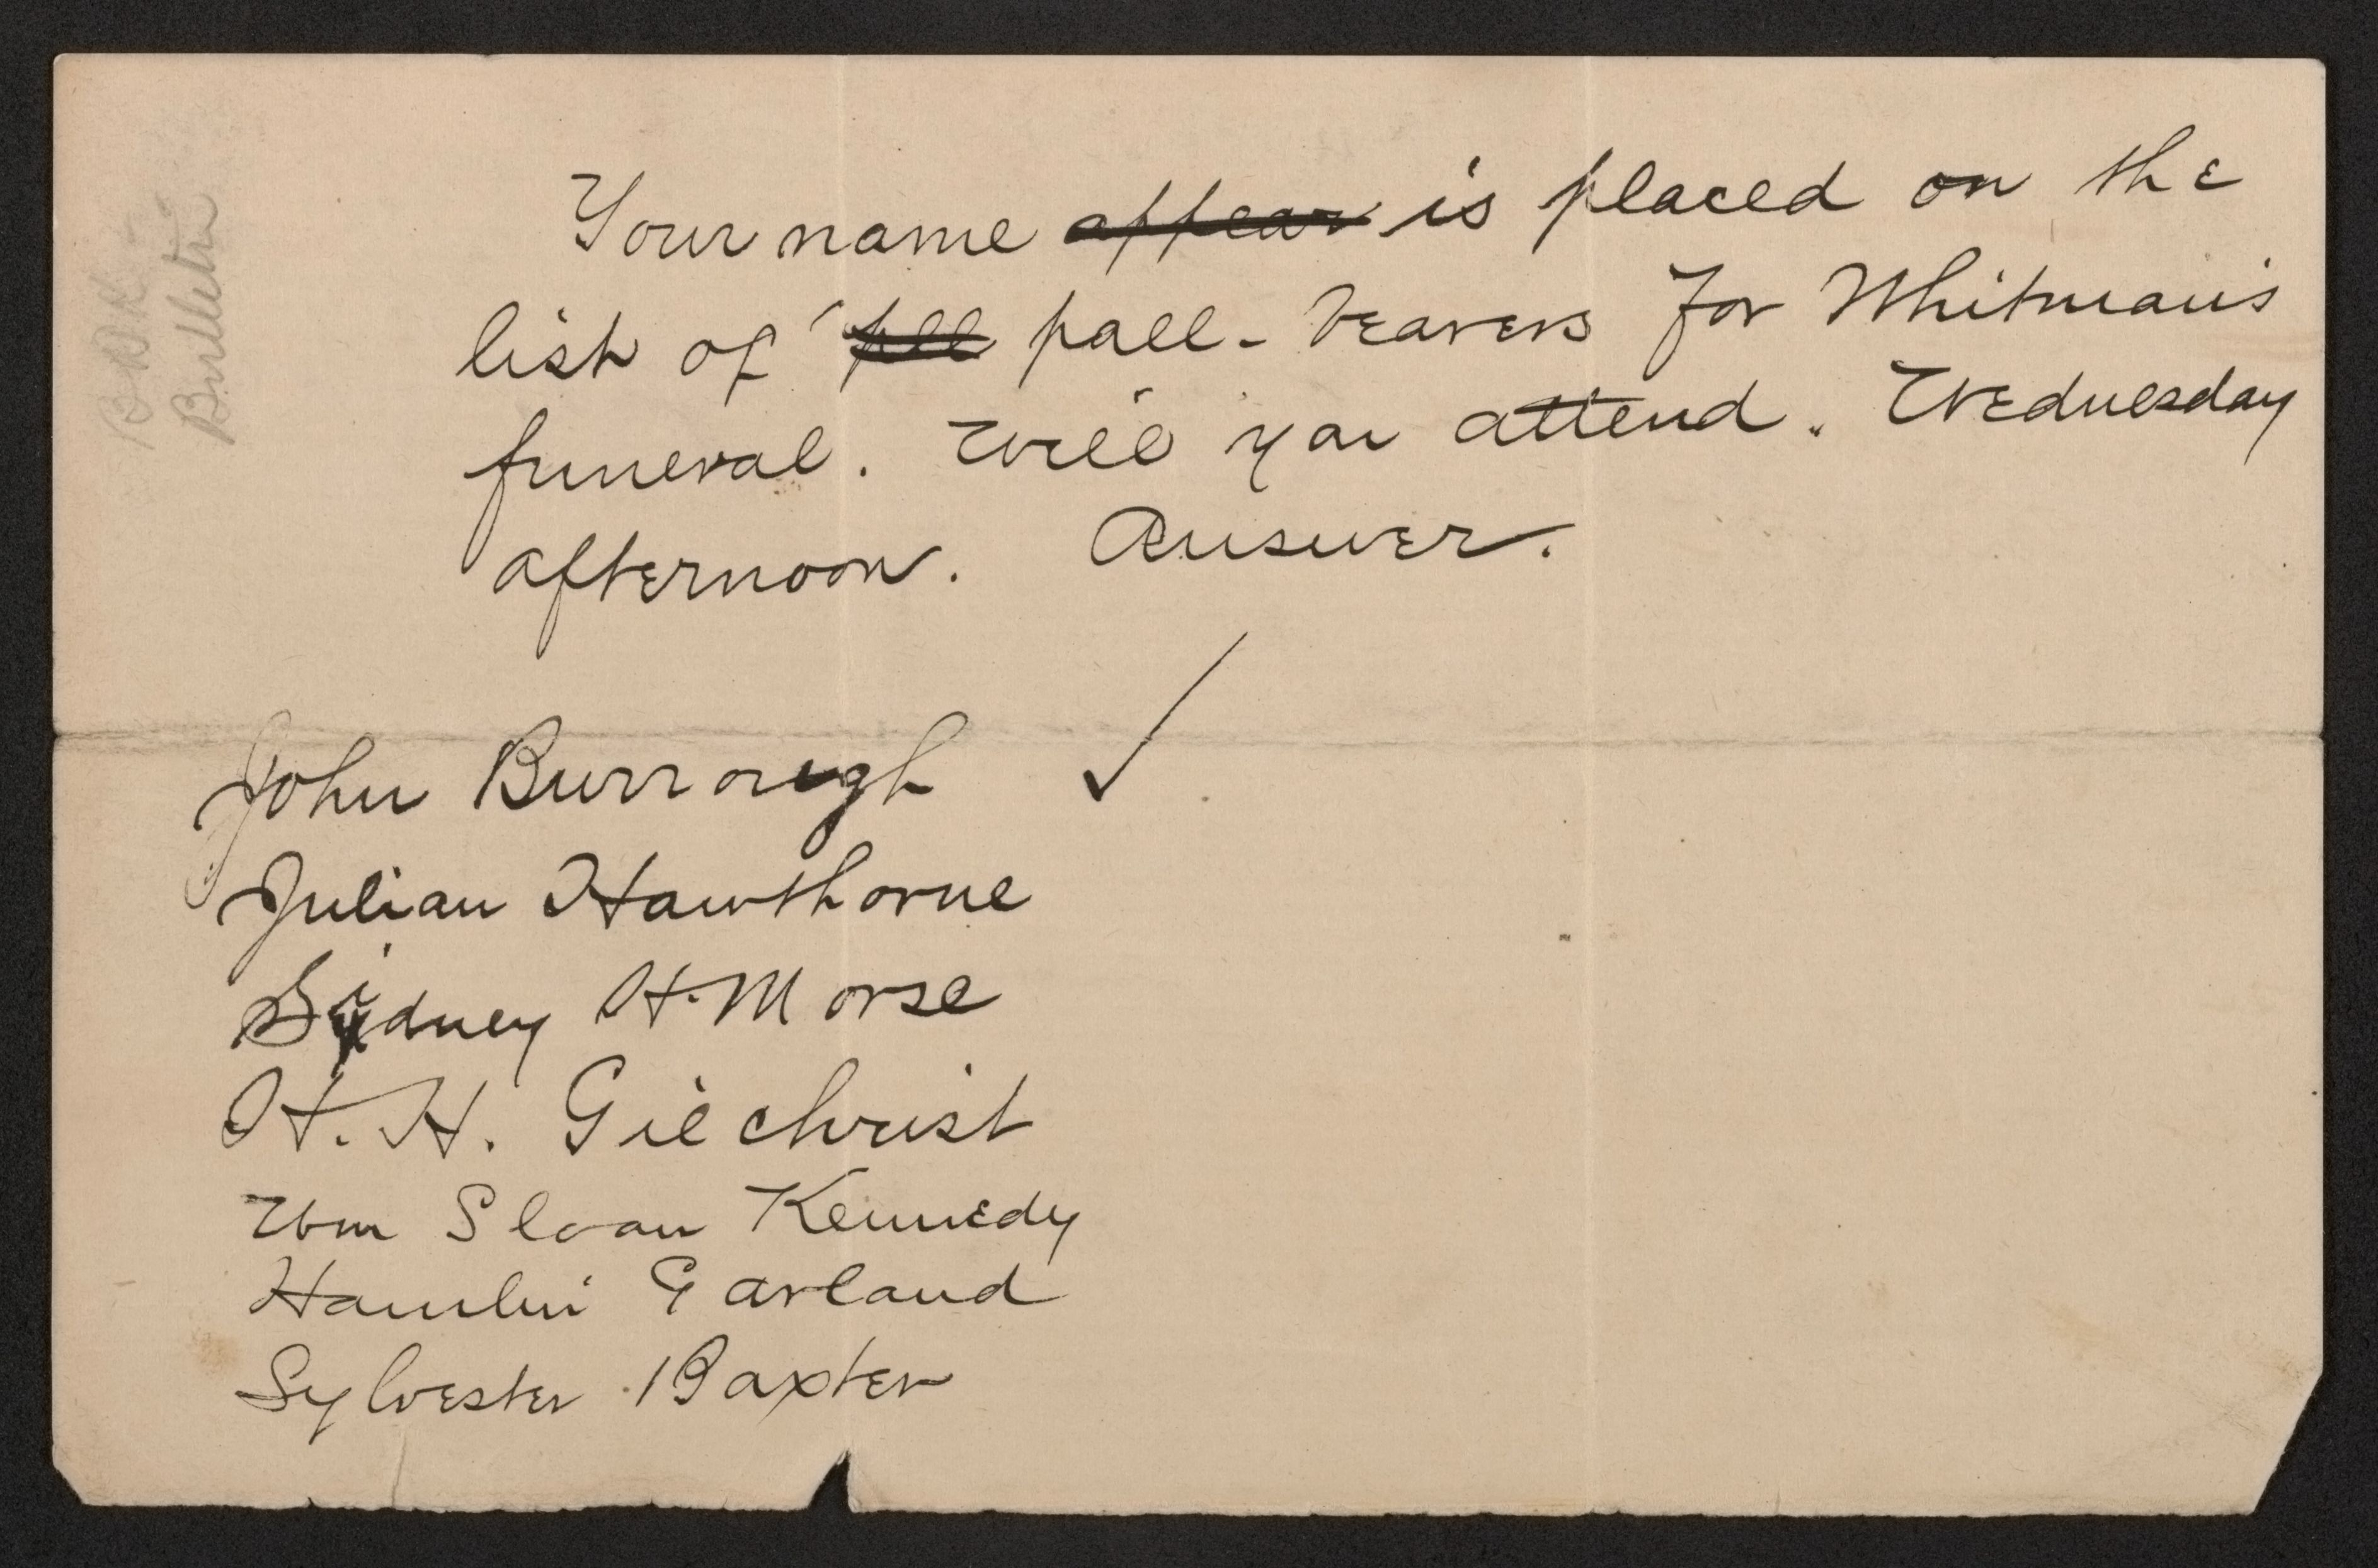 Your name appear is placed on the
list of pll pall-bearers for Whitman's
funeral. Will you attend. Wednesday
afternoon. Answer.
John Burrough ✓
Julian Hawthorne
Sidney H. Morse
H. H. Gilchrist
Wm Sloan Kennedy
Hamlin Garland
Sylvester Baxter
Bulletin